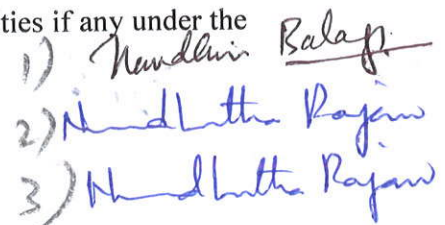 ties if any under the
1) Nandhini Balaji
2) Nandhitha Rajan
3) Nandhitha Rajan